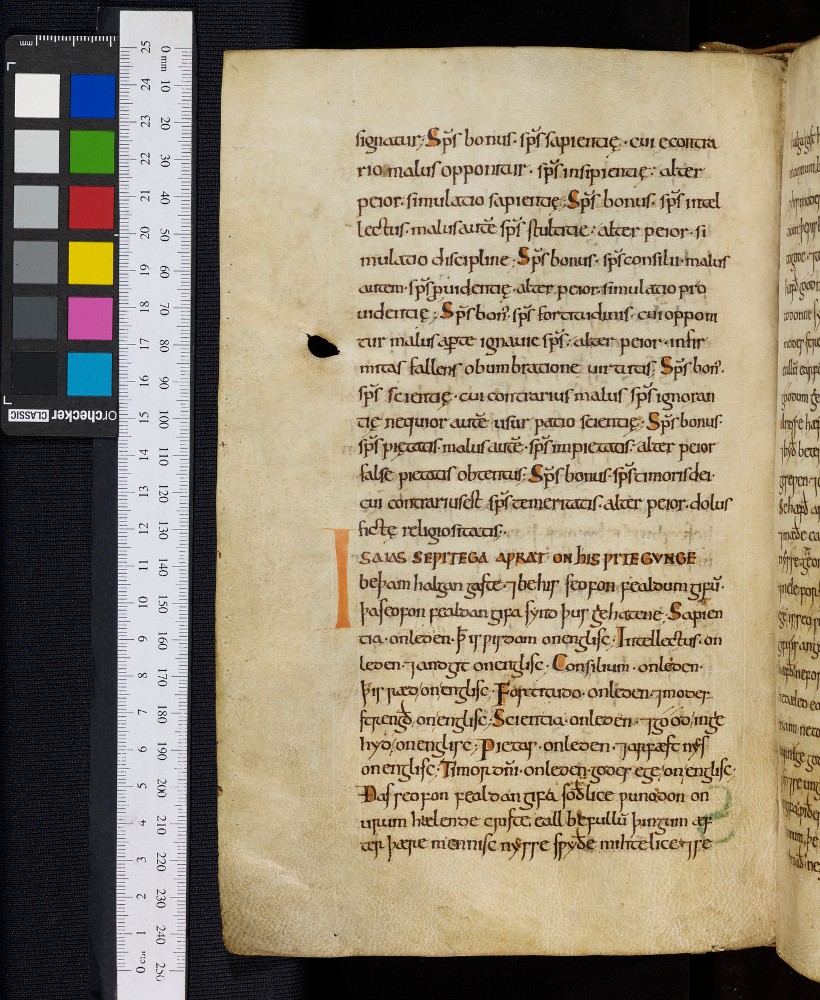 signatur; Sp̄s bonus. sp̄s sapientię. cui econtra
rio malus opponitur. sp̄s insipientię; alter
peior. simulatio sapientię; Sp̄s bonus. sp̄s intel
lectus. malus autē sp̄s stultitię; alter peior. si
mulatio discipline; Sp̄s bonus. sp̄s consilii. malus
autem. sp̄s ꝓuidentię. alter peior. simulatio pro
uidentię; Sp̄s bon̄. sp̄s fortitudinis. cui opponi
tur malus aperte ignauie sp̄s; alter peior. infir
mitas fallens obumbratione uirtutis; Sp̄s bon̄.
sp̄s scientię. cui contrarius malus sp̄s ignoran
tię nequior autē usurpatio scientię; Sp̄s bonus.
sp̄s pietatis. malus autē. sp̄s impietatis. alter peior
false pietatis obtentus; Sp̄s bonus. sp̄s timoris dei.
cui contrarius est sp̄s temeritatis. alter peior. dolus
fictę religiositatis;
ISAIAS SE ǷITEGA AǷRAT ON HIS ǷITEGVNGE
be þam halgan gaste. ⁊ be his seofon fealdum gifū.
þa seofon fealdan gifa synd þus gehatene; Sapien
tia. on leden. ꝥ is ƿisdom on englisc; Intellectus. on
leden. ⁊ andgit on englisc. Consilium. on leden.
þis ræd, on englisc. Fortitudo. on leden. ⁊ modes
strengð, on englisc; Scientia. on leden. ⁊ god inge
hyd, on englisc; Pietas. on leden. ⁊ arfæstnys
on englisc; Timor dn̄i. on leden. godes ege, on englisc.
Ðas seofon fealdan gifa soðlice ƿunodon on
urum hælende criste eall be fullū þingum æf
ter þære menniscnysse sƿyðe mihtelice. ⁊ se